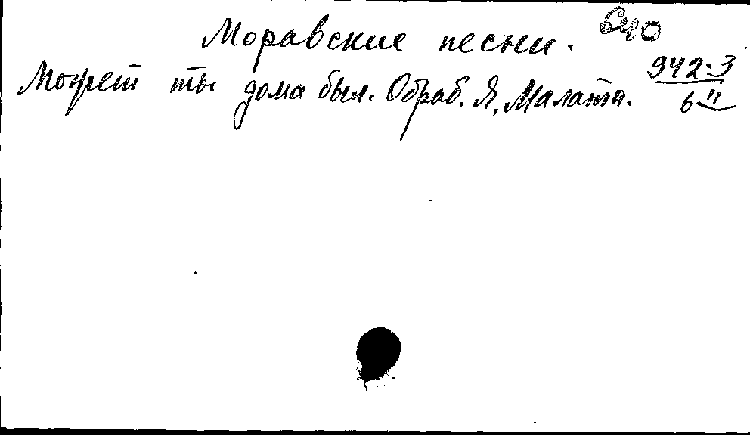 Моравские песни. 640
Может ты дома был. Обраб. Я. Малата. 942-3
6"